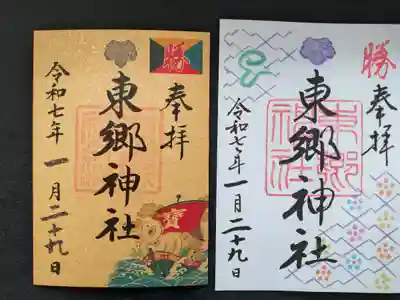 勝
奉拝
東郷神社
令和七年一月二十九日
寶
勝
奉拝
東郷神社
東郷神社
令和七年一月二十九日